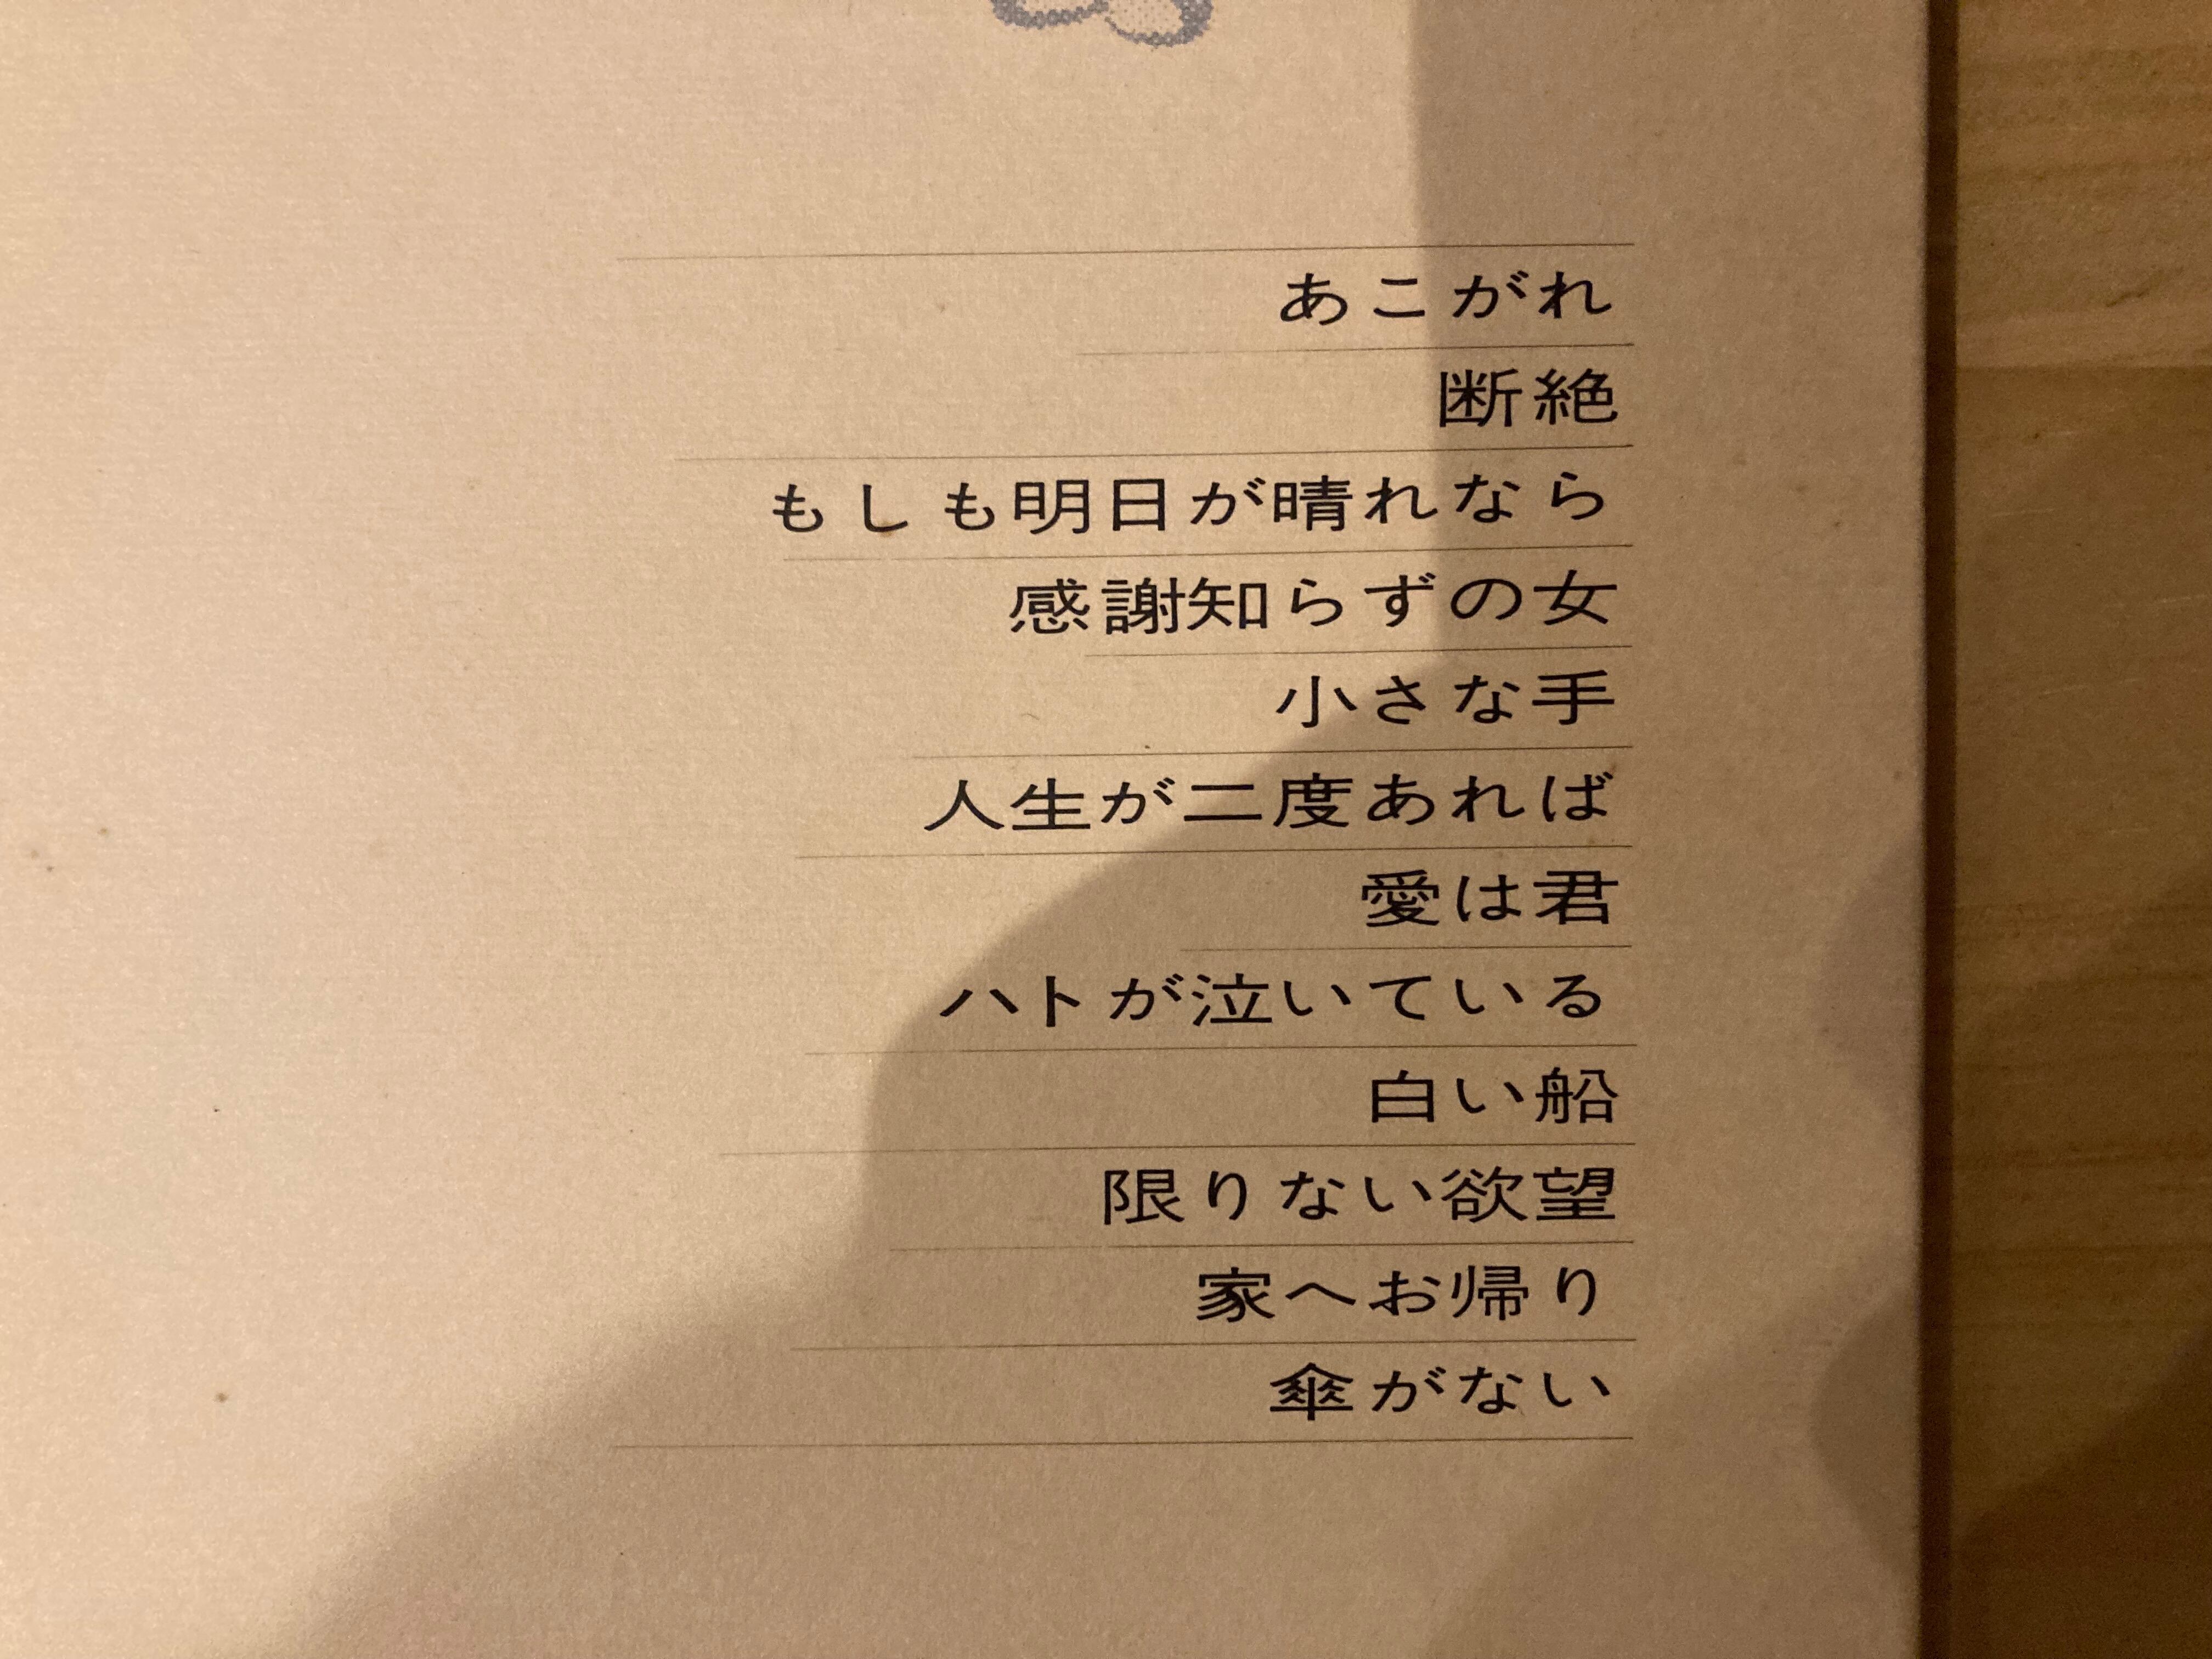 あこがれ
断絶
もしも明日が晴れなら
感謝知らずの女
小さな手
人生が二度あれば
愛は君
ハトが泣いている
白い船
限りない欲望
家へお帰り
傘がない